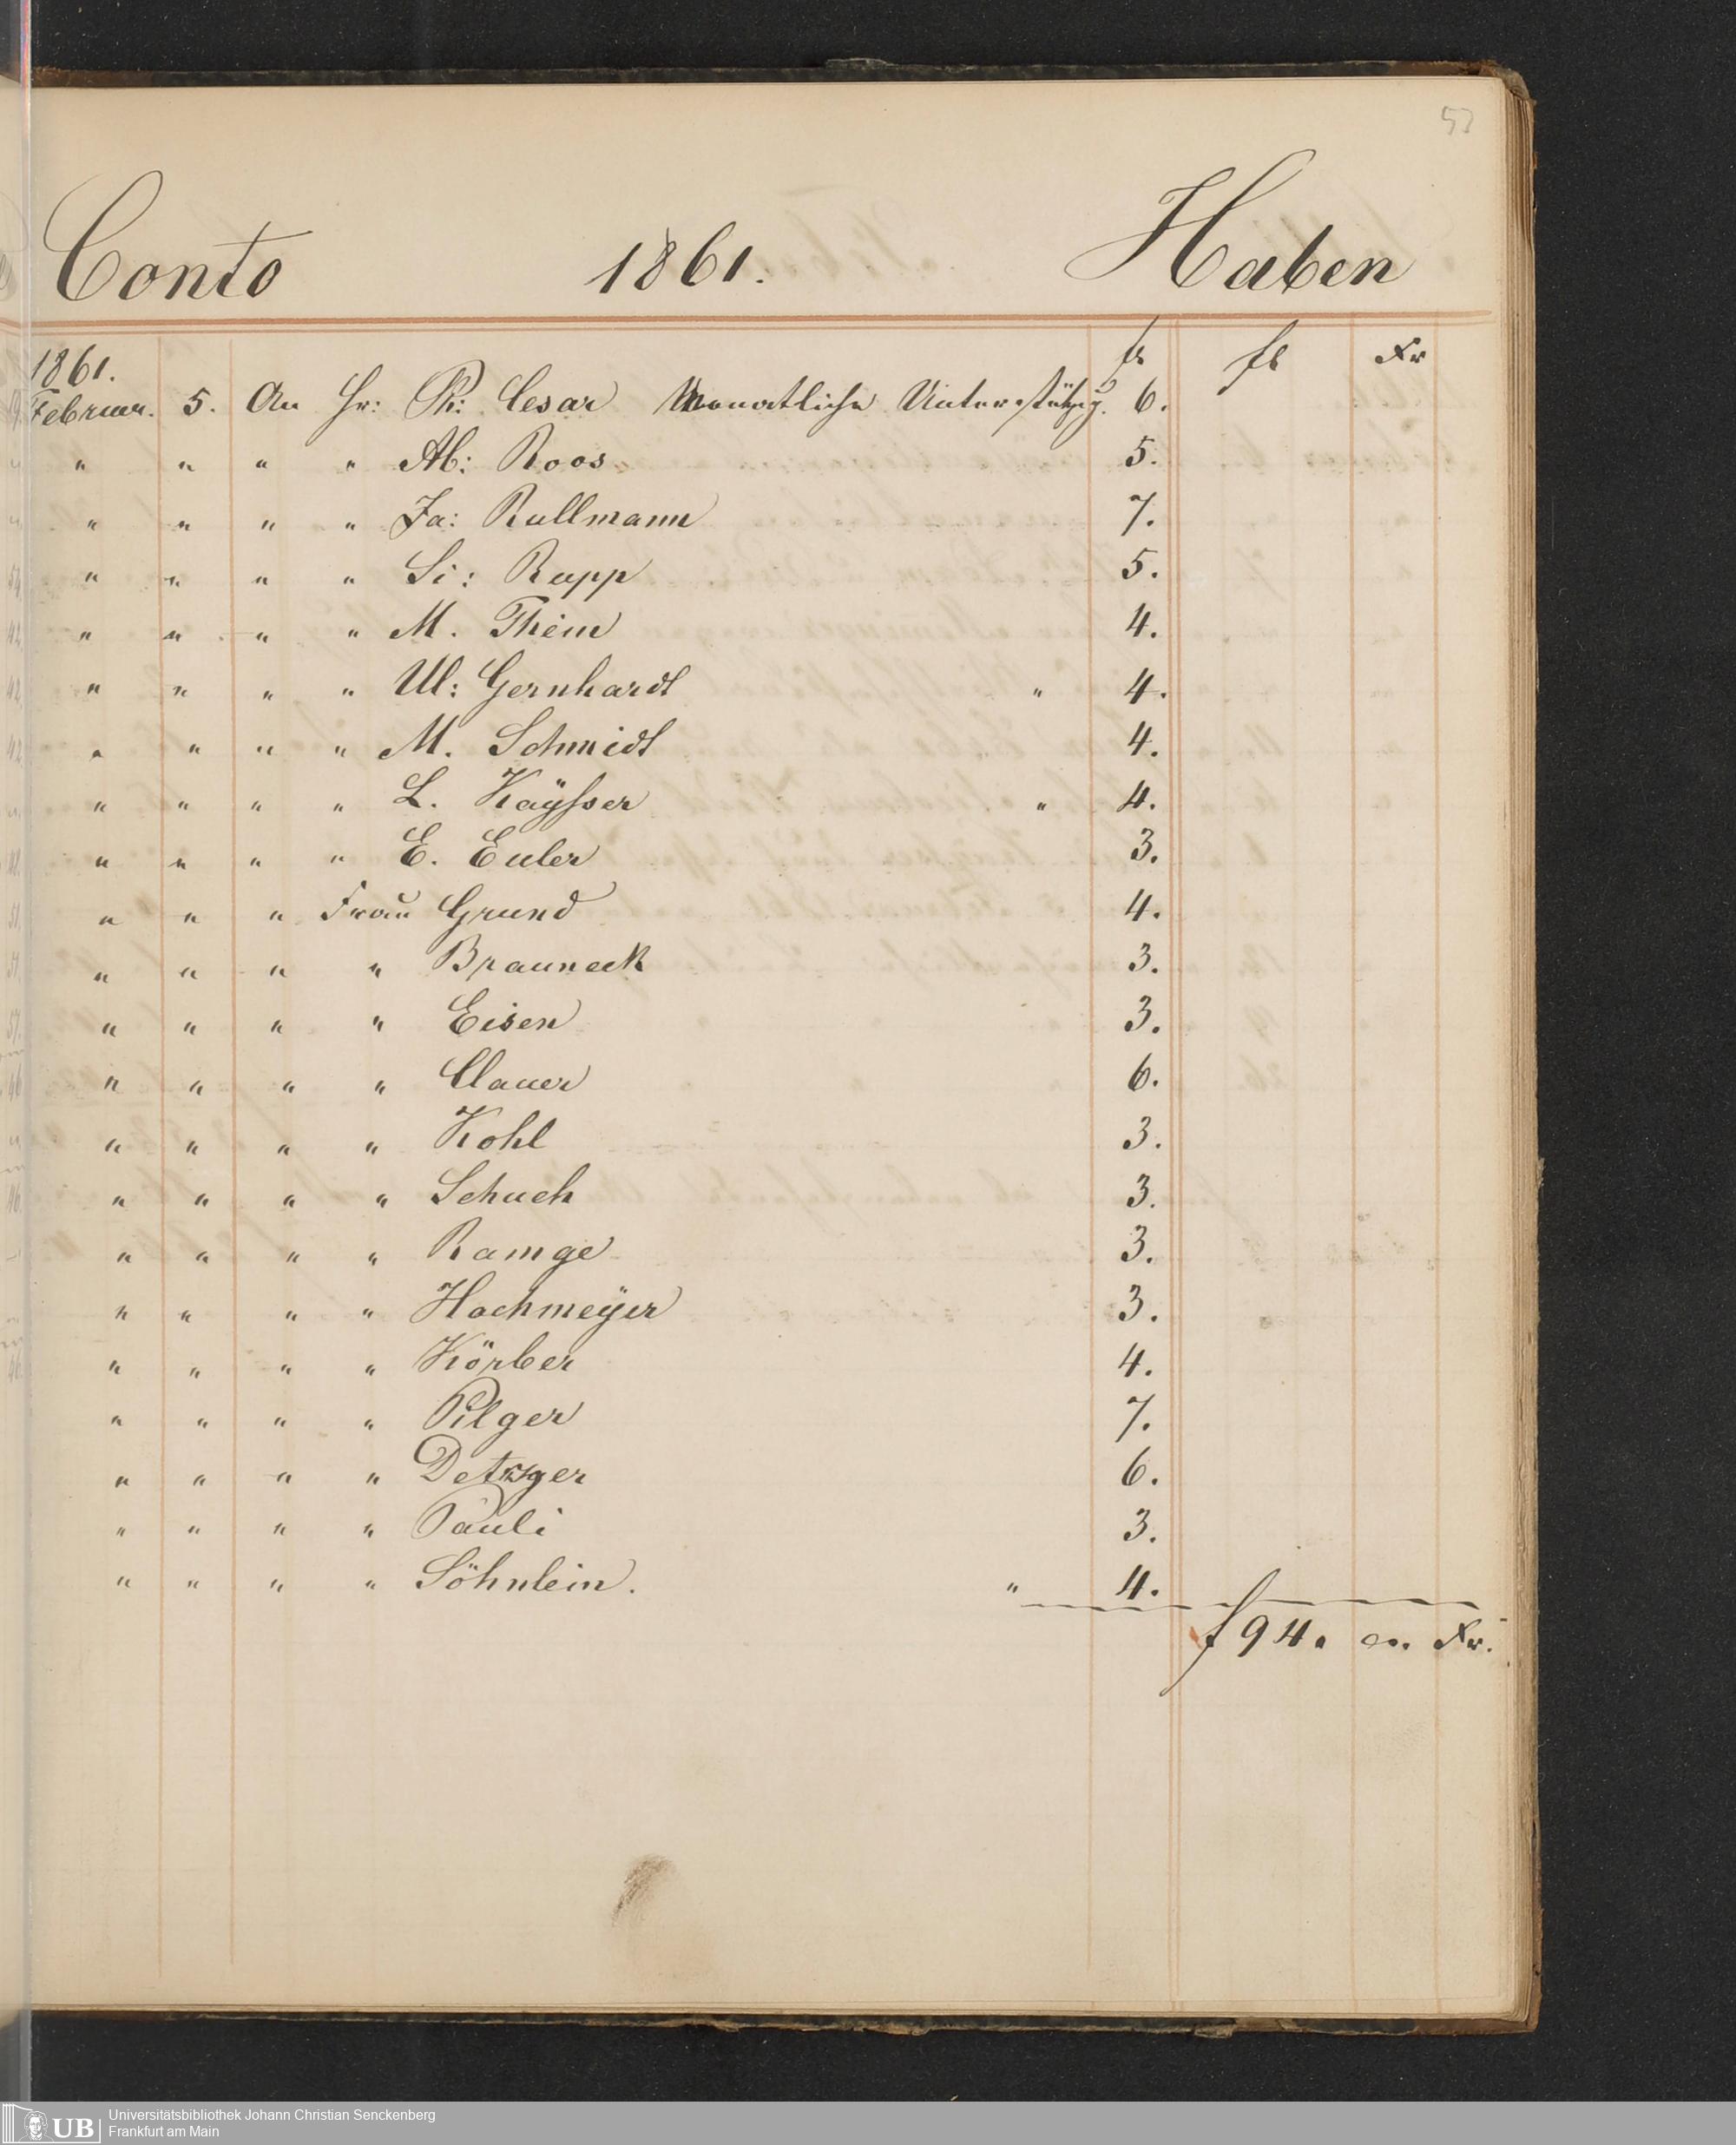 53
Conto 1861. Haben
1861. fl fl Xr
Februar. 5. An Hr: Ph: Cesar Monatliche Unterstützg. 6.
" " " " Ab: Roos 5.
" " " " Ja: Rullmann 7.
" " " " Si: Rupp 5.
" " " " M. Thein 4.
" " " " Ul: Gernhardt " 4.
" " " " M. Schmidt 4.
" " " " L. Kaÿsser " 4.
" " " " E. Euler 3.
" " " Frau Grund 4.
" " " " Brauneck 3.
" " " " Eisen 3.
" " " " Clauer 6.
" " " " Kohl 3.
" " " " Schuch 3.
" " " " Ramge 3.
" " " " Hochmeÿer 3.
" " " " Körber 4.
" " " " Pilger 7.
" " " " Detzger 6.
" " " " Pauli 3.
" " " " Söhnlein. " 4.
f 94. Xr.
UB Universitätsbibliothek Johann Christian Senckenberg
Frankfurt am Main